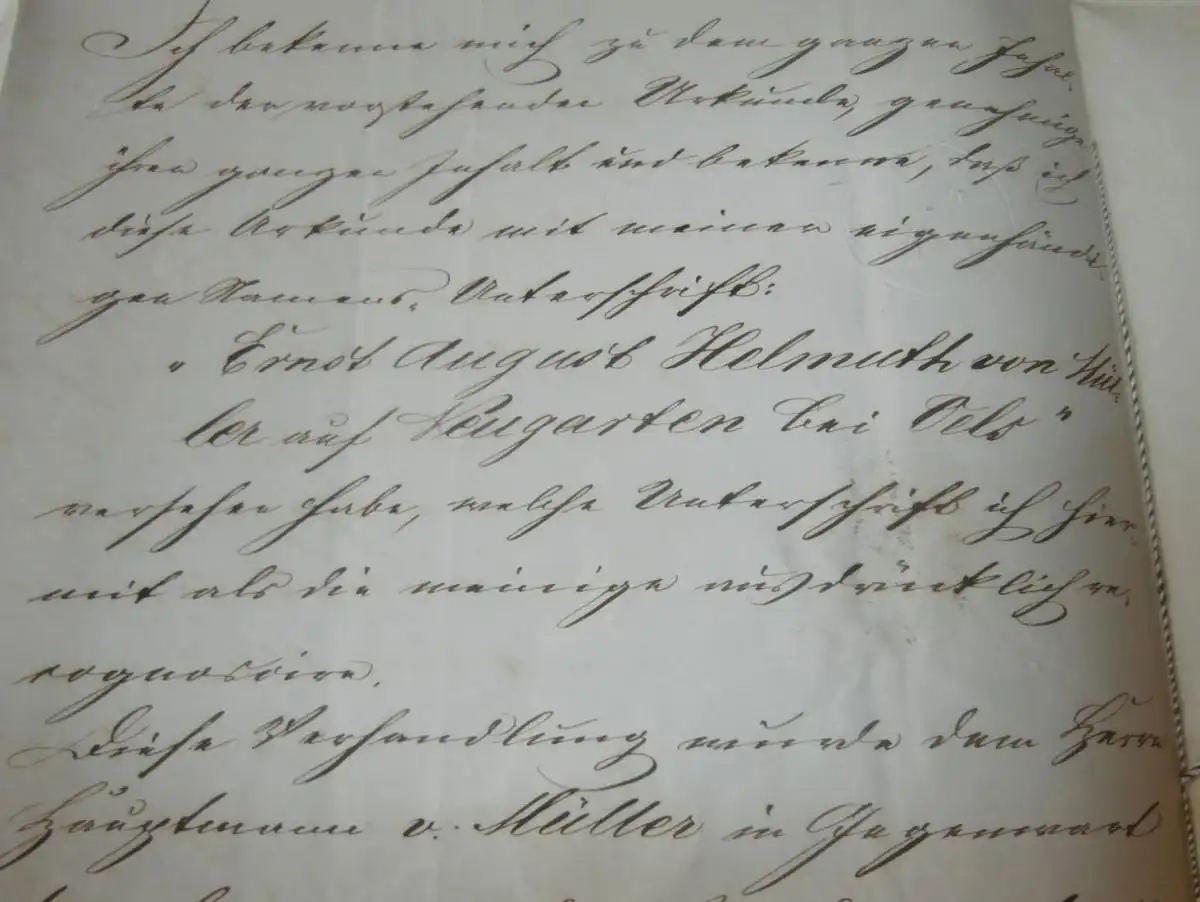 Ich bekenne mich zu dem ganzen Inhal-
te der vorstehenden Urkunde, genehmige
ihren ganzen Inhalt und bekenne, daß ich
diese Urkunde mit meiner eigenhändi-
gen Namens-Unterschrift:
"Ernst August Helmuth von Mül-
ler auf Neugarten bei Oels"
versehen habe, welche Unterschrift ich hier-
mit als die meinige ausdrücklich re-
cognoscire.
Diese Verhandlung wurde dem Herrn
Hauptmann v. Müller in Gegenwart